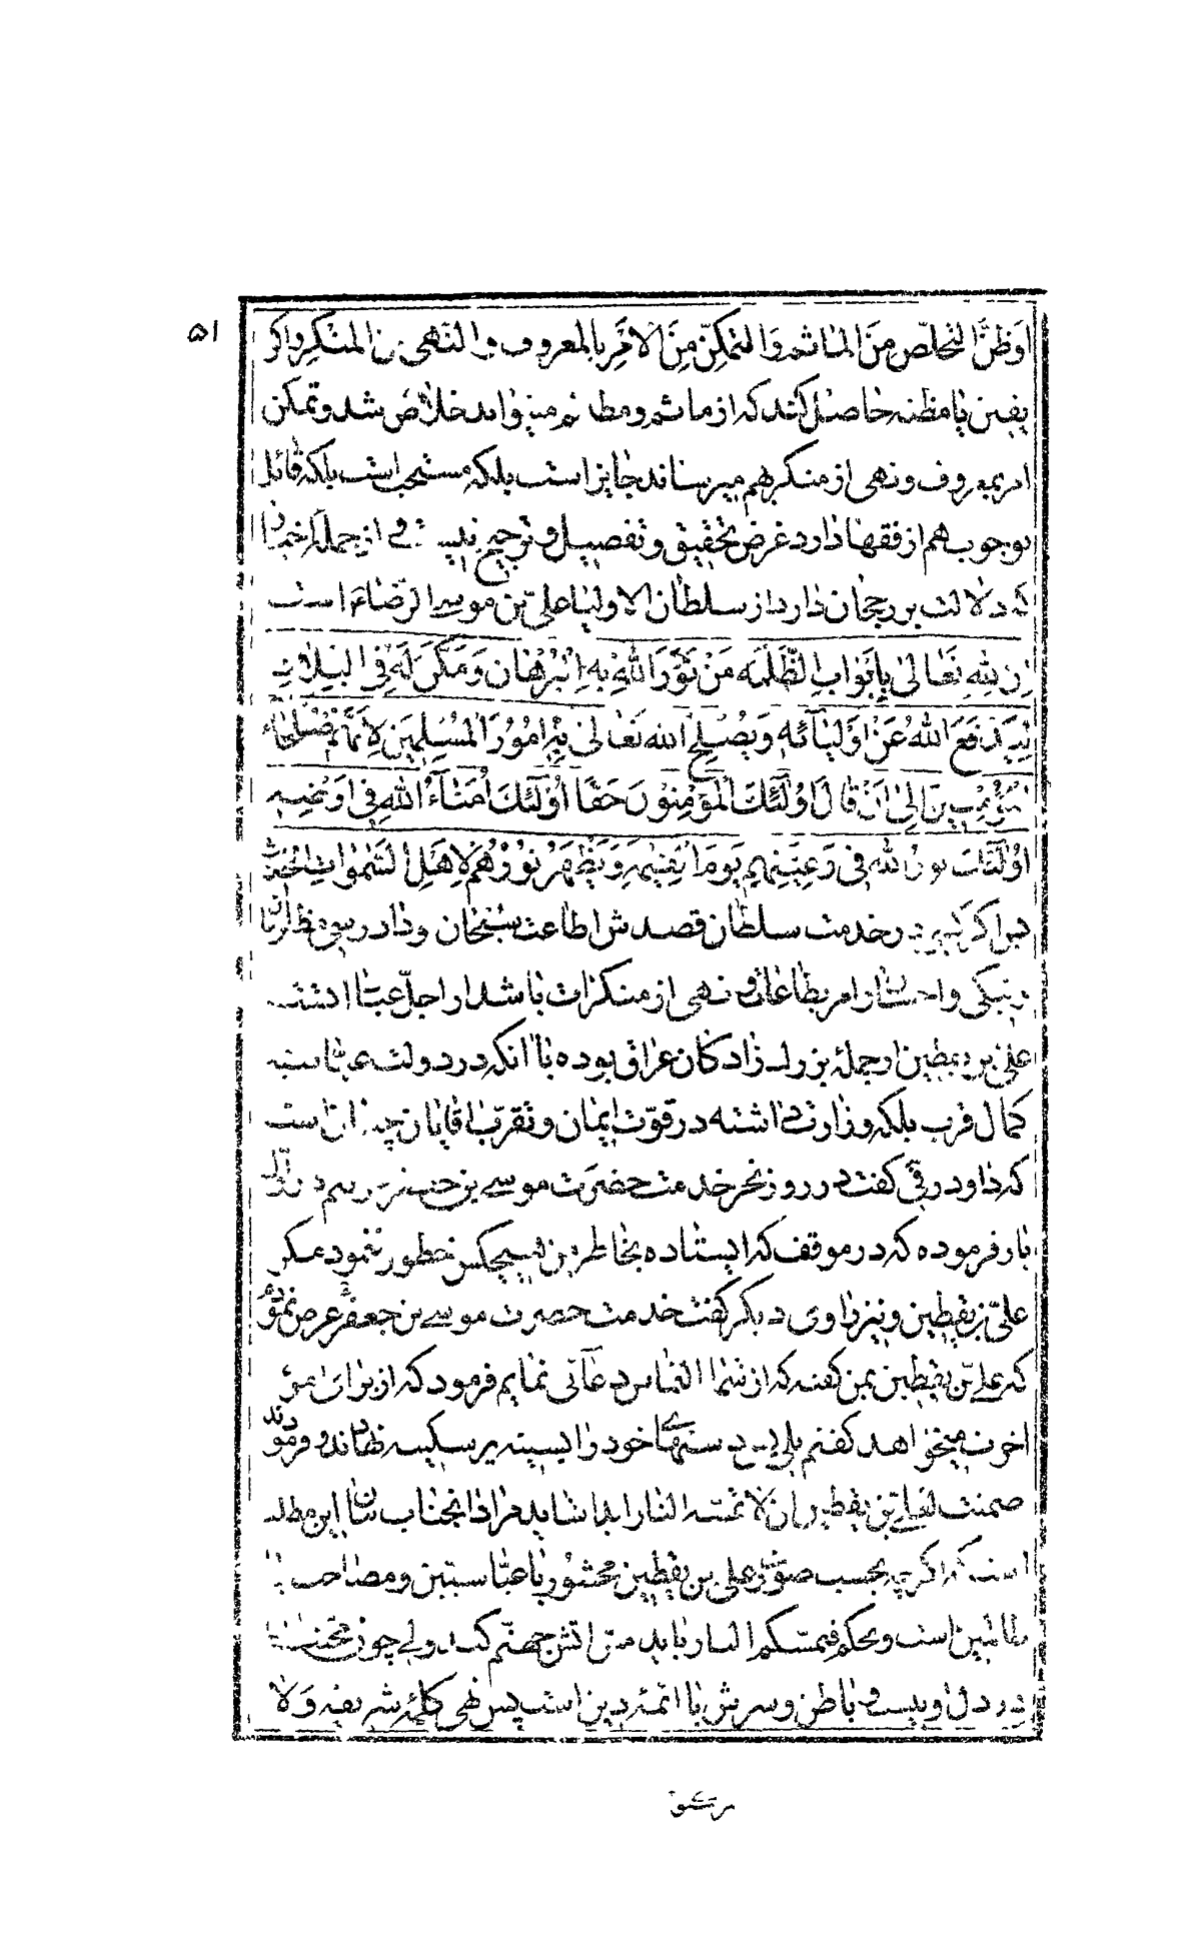 ۵۱
اَوْظَنَّ التخلّص مِنَ الماثم وَالتمكّن مِنَ الْاَمْرِ بالمعروف والنّهی عن المنكر واکر
یقین یا مظنه حاصل کند که از ماثم و مظالم میتواند خلاص شد و تمکن
امر بمعروف و نهی از منکر هم میرساند جایز است بلکه مستحب است بلکه قائل
بوجوب هم از فقها دارد غرض تحقیق و تفصیل و ترجیح نیست و از جمله اخبار
که دلالت بر رجحان دارد از سلطان الاولیا علیّ بن موسی الرّضاء است
اِن لِلّهِ تَعالیٰ بِاَبوابِ الظَّلَمه مَنْ نَوَّرَ اللهُ بِهِ الْبُرْهان وَمَکَّنَ لَهُ فِی الْبِلادِ
لِیَدْفَعَ اللهُ عَنْ اَوْلیآئه وَیُصْلِحُ الله تَعٰالیٰ بِهِ اُمُوْرَ الْمُسْلِمین لِاَنَّهُمْ صُلَحاء
الْمُؤْمِنینَ اِلیٰ اَنْ قٰالَ اُولٰئِكَ الْمُؤْمِنُوْنَ حَقّا اُولٰئِكَ اُمَنٰآءُ اللهِ فی اَرْضِه
اُولٰئِكَ نور الله فی رَعِیَّتِهِم یَوْمَ الْقِیٰمَه وَیَظْهَرُ نُوْرُهُمْ لِاَهْلِ السَّمٰوات
هر اکر کسی در خدمت سلطان قصدش اطاعت سبحان و دادرسی مظلومان
نیکی و احسان و امر بطاعات و نهی از منکرات باشد از اجلّ عبادات است
علی بن یقطین از جملهٔ بزرك زادکان عراق بوده با انکه در دولت عبّاسیه
کمال قرب بلکه وزارت داشته در قوّت ایمان و تقرّب اقایان چنان است
که داود رقّی کفت در روز نحر خدمت حضرت موسی بن جعفر رسیدم
بار فرموده که در موقف که ایستاده بخاطر من هیچکس خطور ننمود مکر
علیّ بن یقطین و نیز راوی دیکر کفت خدمت حضرت موسی بن جعفر عرض نمود
که علیّ بن یقطین بمن کفته که از شما التماس دعآئی نمایم فرمود که از برای امور
اخرت میخواهد کفتم بلی پس دستهای خود را بسینه نهادند و فرمودند
ضمنت لعلی بن یقطین ان لا تمسّه النار ابدا شاید مراد انجناب بیان این مطلب
است که اکرچه بحسب صورت علی بن یقطین محشور با عبّاسیّین و مصاحب با
ظالمین است و بحکم فتمسّکم النار باید مسّ اتش جهنّم کند ولی چون محبّت
در دل او نیست و باطن و سرش با ائمّه دین است پس نهی کلمهٔ شریفه وَلا